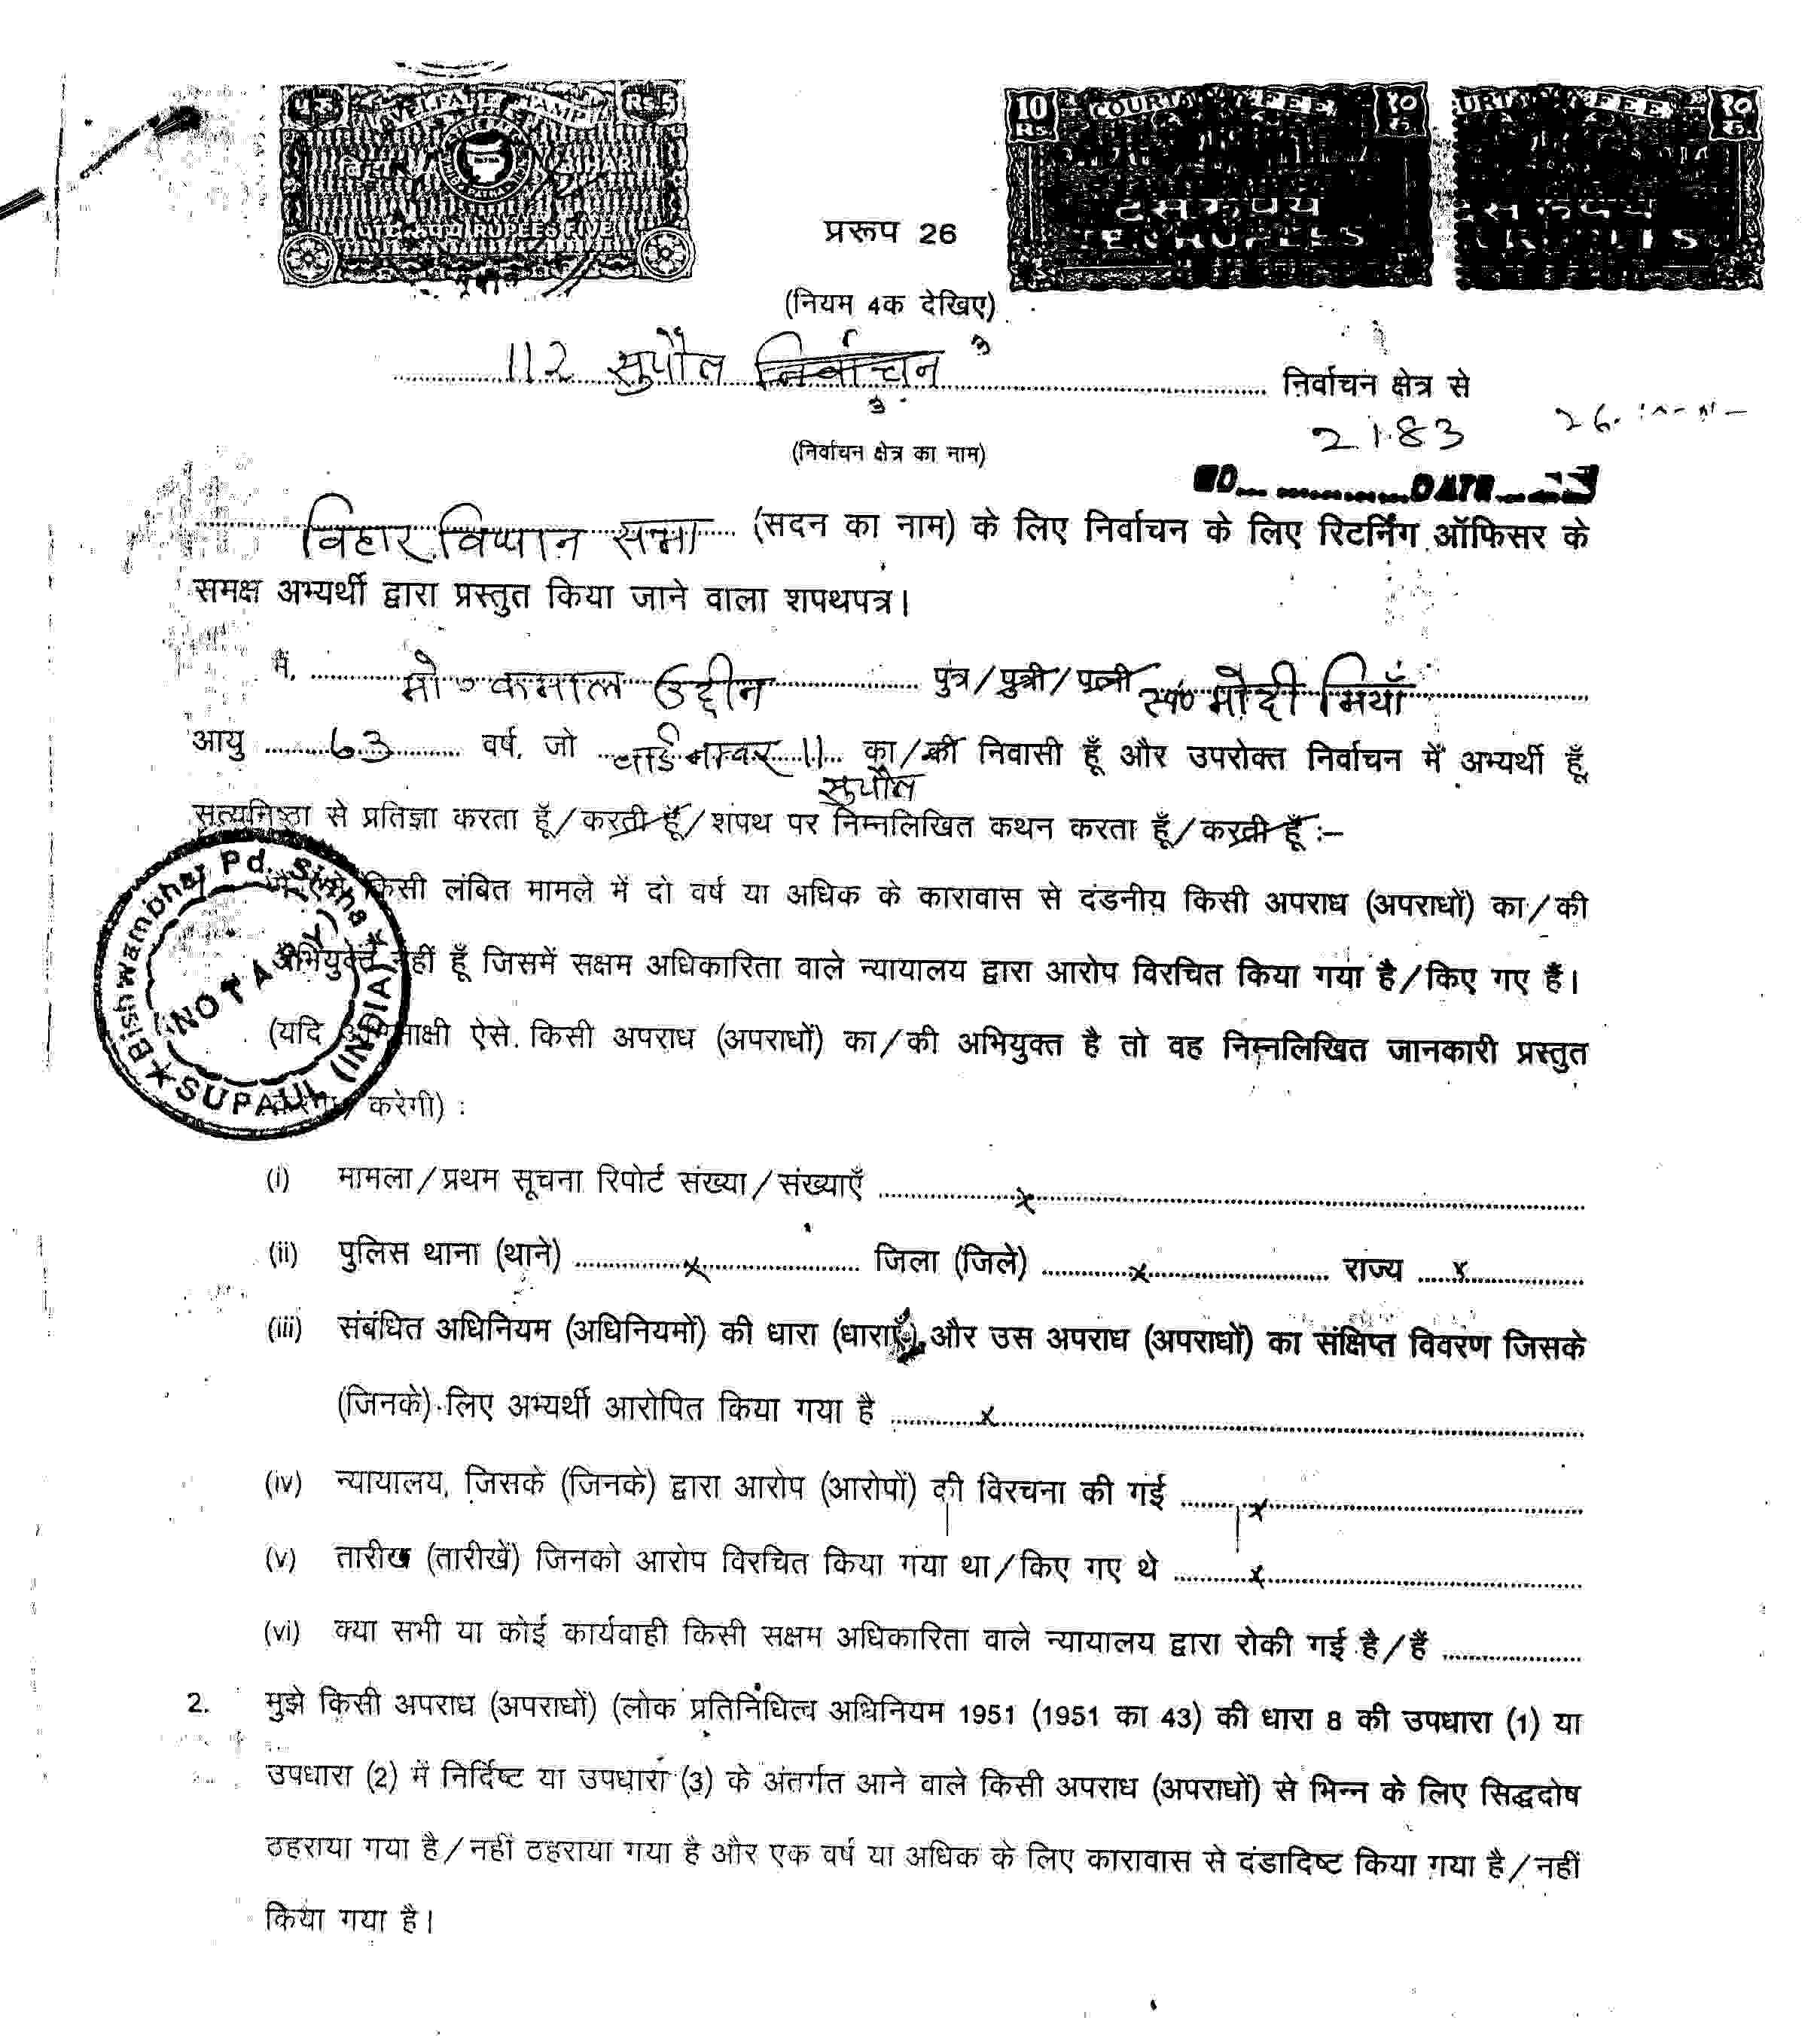 WELFARE STAMP Rs. 5
BIHAR
RUPEES FIVE
10 Rs. COURT FEE १० रु.
दस रुपये
TEN RUPEES
COURT FEE १० रु.
प्ररूप 26
(नियम 4क देखिए)
112 सुपौल निर्वाचन निर्वाचन क्षेत्र से
(निर्वाचन क्षेत्र का नाम)
2183
NO. DATE
बिहार विधान सभा (सदन का नाम) के लिए निर्वाचन के लिए रिटर्निंग ऑफिसर के
समक्ष अभ्यर्थी द्वारा प्रस्तुत किया जाने वाला शपथपत्र।
मैं, मो० कमाल उद्दीन पुत्र/पुत्री/पत्नी स्व० मोदी मियाँ
आयु 63 वर्ष, जो वार्ड नम्बर 11 सुपौल का/की निवासी हूँ और उपरोक्त निर्वाचन में अभ्यर्थी हूँ,
सत्यनिष्ठा से प्रतिज्ञा करता हूँ/करती हूँ/शपथ पर निम्नलिखित कथन करता हूँ/करती हूँ :–
किसी लंबित मामले में दो वर्ष या अधिक के कारावास से दंडनीय किसी अपराध (अपराधों) का/की
अभियुक्त नहीं हूँ जिसमें सक्षम अधिकारिता वाले न्यायालय द्वारा आरोप विरचित किया गया है/किए गए हैं।
(यदि अभिसाक्षी ऐसे किसी अपराध (अपराधों) का/की अभियुक्त है तो वह निम्नलिखित जानकारी प्रस्तुत
करेगी) :
Bishwambhar Pd. Sinha
(NOTARY)
SUPAUL (INDIA)
(i) मामला/प्रथम सूचना रिपोर्ट संख्या/संख्याएँ x
(ii) पुलिस थाना (थाने) x जिला (जिले) x राज्य x
(iii) संबंधित अधिनियम (अधिनियमों) की धारा (धाराएँ) और उस अपराध (अपराधों) का संक्षिप्त विवरण जिसके
(जिनके) लिए अभ्यर्थी आरोपित किया गया है x
(iv) न्यायालय, जिसके (जिनके) द्वारा आरोप (आरोपों) की विरचना की गई x
(v) तारीख (तारीखें) जिनको आरोप विरचित किया गया था/किए गए थे x
(vi) क्या सभी या कोई कार्यवाही किसी सक्षम अधिकारिता वाले न्यायालय द्वारा रोकी गई है/हैं
2. मुझे किसी अपराध (अपराधों) (लोक प्रतिनिधित्व अधिनियम 1951 (1951 का 43) की धारा 8 की उपधारा (1) या
उपधारा (2) में निर्दिष्ट या उपधारा (3) के अंतर्गत आने वाले किसी अपराध (अपराधों) से भिन्न के लिए सिद्धदोष
ठहराया गया है/नहीं ठहराया गया है और एक वर्ष या अधिक के लिए कारावास से दंडादिष्ट किया गया है/नहीं
किया गया है।